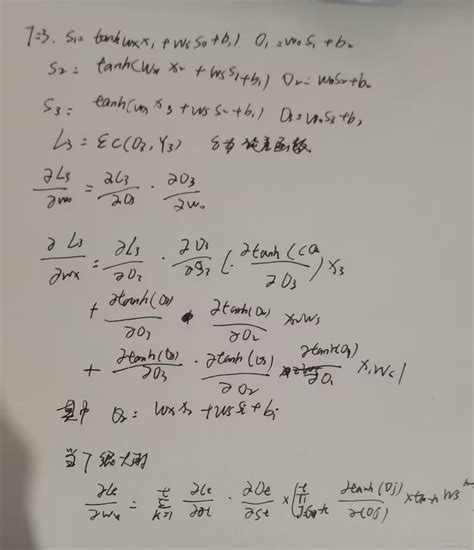 T=3. S₁ = tanh(wxX₁ + wsS₀ + b₁) O₁ = woS₁ + b₂
S₂ = tanh(wx X₂ + wsS₁ + b₁) O₂ = woS₂ + b₂
S₃ = tanh(wx X₃ + wsS₂ + b₁) O₃ = woS₃ + b₂
L₃ = εC(O₃, Y₃) 函数
∂L₃/∂wo = ∂L₃/∂O₃ · ∂O₃/∂wo
∂L₃/∂wx = ∂L₃/∂O₃ · ∂O₃/∂S₃ (∂tanh( )/∂O₃) X₃
+ ∂tanh(O₃)/∂O₃ · ∂tanh(O₂)/∂O₂ X₂ws
+ ∂tanh(O₃)/∂O₃ · ∂tanh( )/∂O₂ ∂tanh(O₁)/∂O₁ X₁ws
其中 O₂ = wxX₂ + wsS₁ + b₁
当T很大时
∂Lt/∂wx = Σ ∂Lt/∂Ot · ∂Ot/∂St × (Π ∂tanh(Oj)/∂(Oj) ×